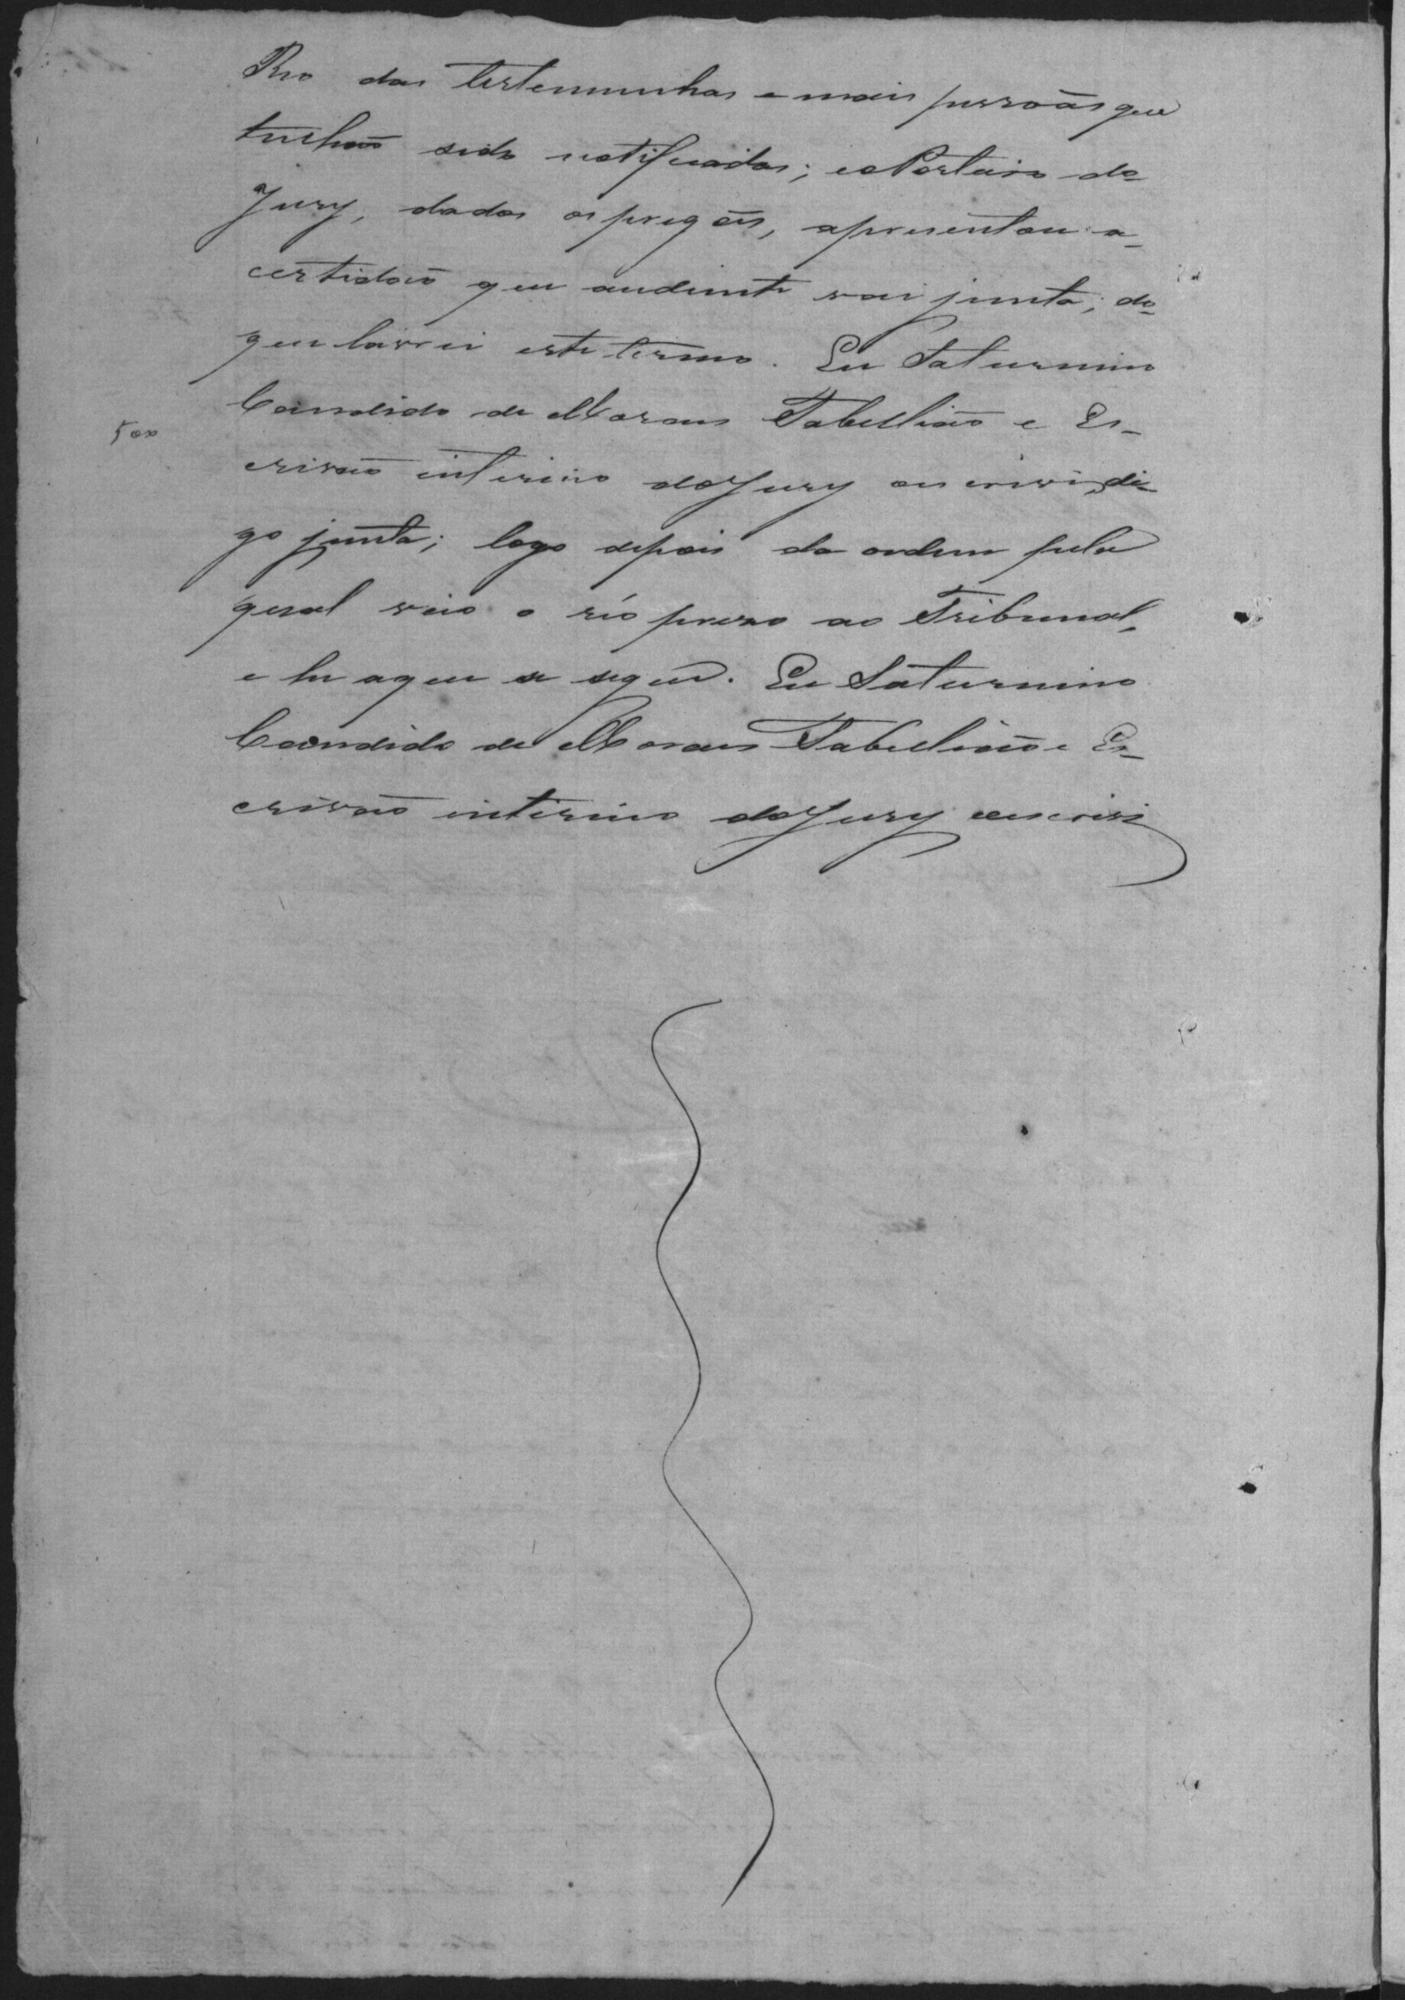 Reo das testemunhas e mais pessoas que
tinhão sido notificadas; e o Porteiro do
Jury, dados os pregões, apresentou a
certidão que andiante vai junta; do
que lavrei este termo. Eu Saturnino
Candido de Moraes Tabellião e Es-
crivão interino do Jury escrivi, di-
go junta; logo depois da ordem pela
qual veio o réo preso ao Tribunal,
e he a que se segue. Eu Saturnino
500
Candido de Moraes Tabellião e Es-
crivão interino do Jury escrivi